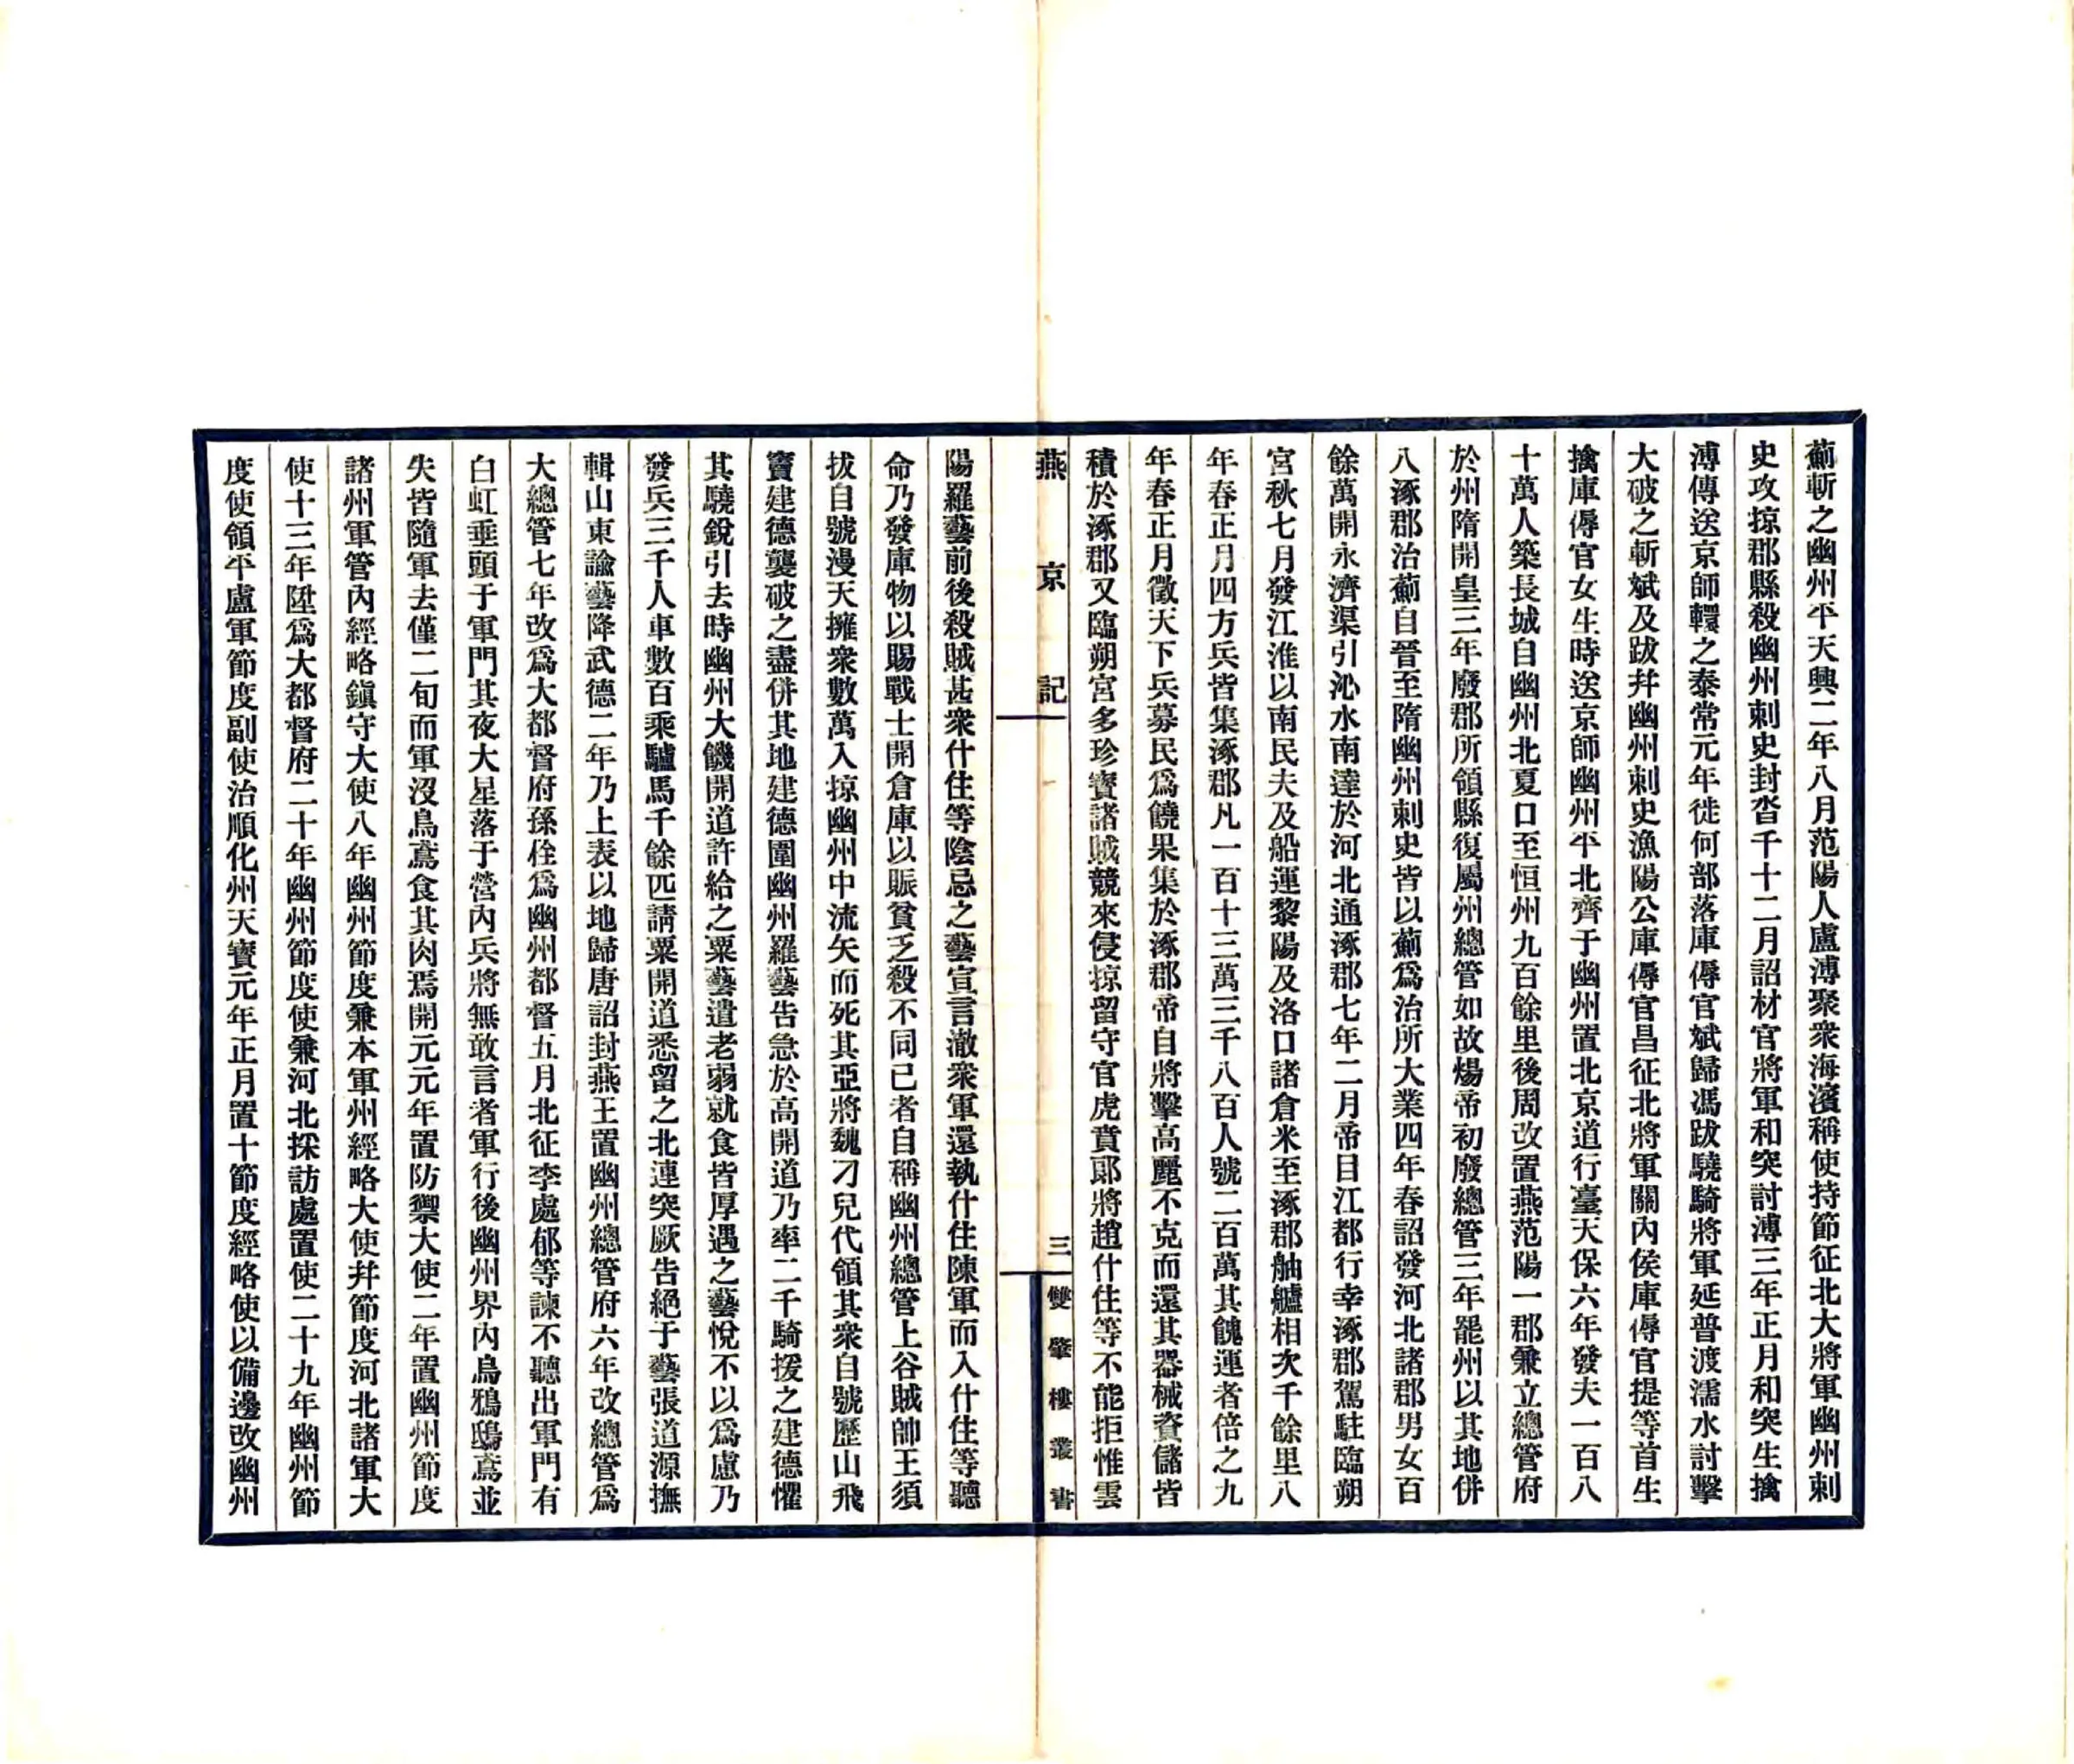 薊斬之幽州平天興二年八月范陽人盧溥聚衆海濱稱使持節征北大將軍幽州刺
史攻掠郡縣殺幽州刺史封沓千十二月詔材官將軍和突討溥三年正月和突生擒
溥傳送京師轘之泰常元年徙何部落庫傉官斌歸馮跋驍騎將軍延普渡濡水討擊
大破之斬斌及跋幷幽州刺史漁陽公庫傉官昌征北將軍關內侯庫傉官提等首生
擒庫傉官女生時送京師幽州平北齊于幽州置北京道行臺天保六年發夫一百八
十萬人築長城自幽州北夏口至恒州九百餘里後周改置燕范陽一郡兼立總管府
於州隋開皇三年廢郡所領縣復屬州總管如故煬帝初廢總管三年罷州以其地併
八涿郡治薊自晉至隋幽州刺史皆以薊爲治所大業四年春詔發河北諸郡男女百
餘萬開永濟渠引沁水南達於河北通涿郡七年二月帝目江都行幸涿郡駕駐臨朔
宮秋七月發江淮以南民夫及船運黎陽及洛口諸倉米至涿郡舳艫相次千餘里八
年春正月四方兵皆集涿郡凡一百十三萬三千八百人號二百萬其餽運者倍之九
年春正月徵天下兵募民爲饒果集於涿郡帝自將擊高麗不克而還其器械資儲皆
積於涿郡又臨朔宮多珍寶諸賊競來侵掠留守官虎賁郞將趙什住等不能拒惟雲
燕京記
三
雙肇樓叢書
陽羅藝前後殺賊甚衆什住等陰忌之藝宣言激衆軍還執什住陳軍而入什住等聽
命乃發庫物以賜戰士開倉庫以賑貧乏殺不同己者自稱幽州總管上谷賊帥王須
拔自號漫天擁衆數萬入掠幽州中流矢而死其亞將魏刁兒代領其衆自號歷山飛
竇建德襲破之盡併其地建德圍幽州羅藝告急於高開道乃率二千騎援之建德懼
其驍銳引去時幽州大饑開道許給之粟藝遣老弱就食皆厚遇之藝悅不以爲慮乃
發兵三千人車數百乘驢馬千餘匹請粟開道悉留之北連突厥告絕于藝張道源撫
輯山東諭藝降武德二年乃上表以地歸唐詔封燕王置幽州總管府六年改總管爲
大總管七年改爲大都督府孫佺爲幽州都督五月北征李處郁等諫不聽出軍門有
白虹垂頭于軍門其夜大星落于營內兵將無敢言者軍行後幽州界內烏鴉鴟鳶並
失皆隨軍去僅二旬而軍沒鳥鳶食其肉焉開元元年置防禦大使二年置幽州節度
諸州軍管內經略鎭守大使八年幽州節度兼本軍州經略大使幷節度河北諸軍大
使十三年陞爲大都督府二十年幽州節度使兼河北採訪處置使二十九年幽州節
度使領平盧軍節度副使治順化州天寶元年正月置十節度經略使以備邊改幽州